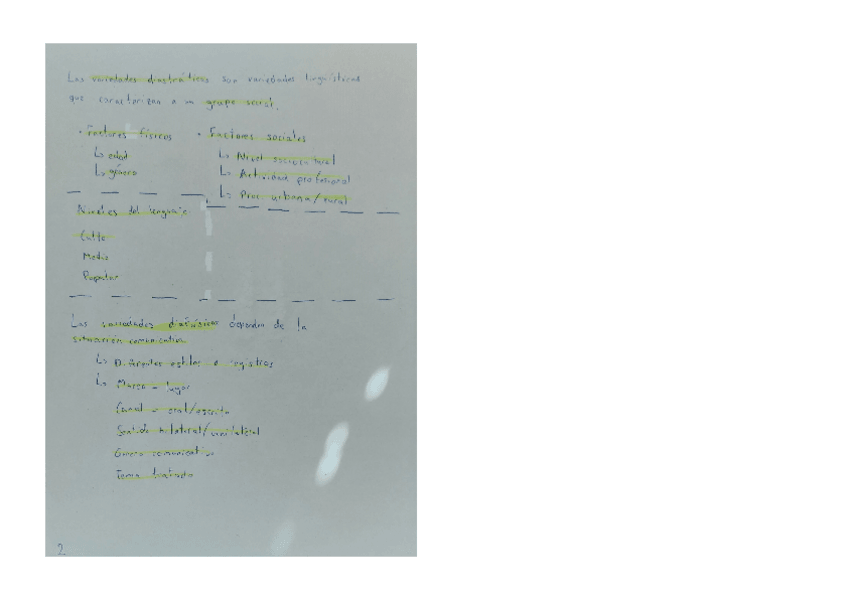 Las variedades diastráticas son variedades lingüísticas
que caracterizan a un grupo social.
• Factores físicos
↳ edad
↳ género
• Factores sociales
↳ Nivel sociocultural
↳ Actividad profesional
↳ Proc. urbana/rural
Niveles del lenguaje
Culto
Medio
Popular
Las variedades diafásicas dependen de la
situación comunicativa
↳ Diferentes estilos o registros
↳ Marco - lugar
Canal - oral/escrito
Sentido bilateral/unilateral
Género comunicativo
Tema tratado
2